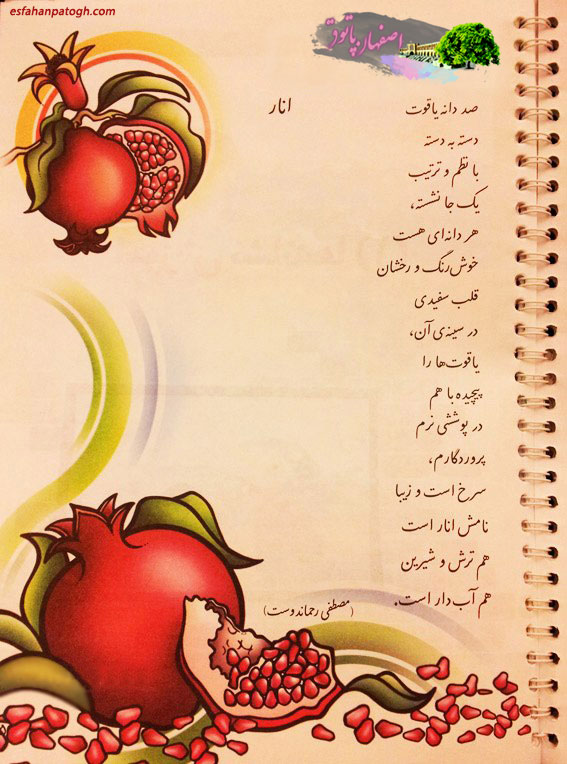 esfahanpatogh.com
اصفهان پاتوق
انار
صد دانه یاقوت
دسته به دسته
با نظم و ترتیب
یک جا نشسته،
هر دانه‌ای هست
خوش‌رنگ و رخشان
قلب سفیدی
در سینه‌ی آن،
یاقوت‌ها را
پیچیده با هم
در پوششی نرم
پروردگارم،
سرخ است و زیبا
نامش انار است
هم ترش و شیرین
هم آب دار است.
(مصطفی رحماندوست)